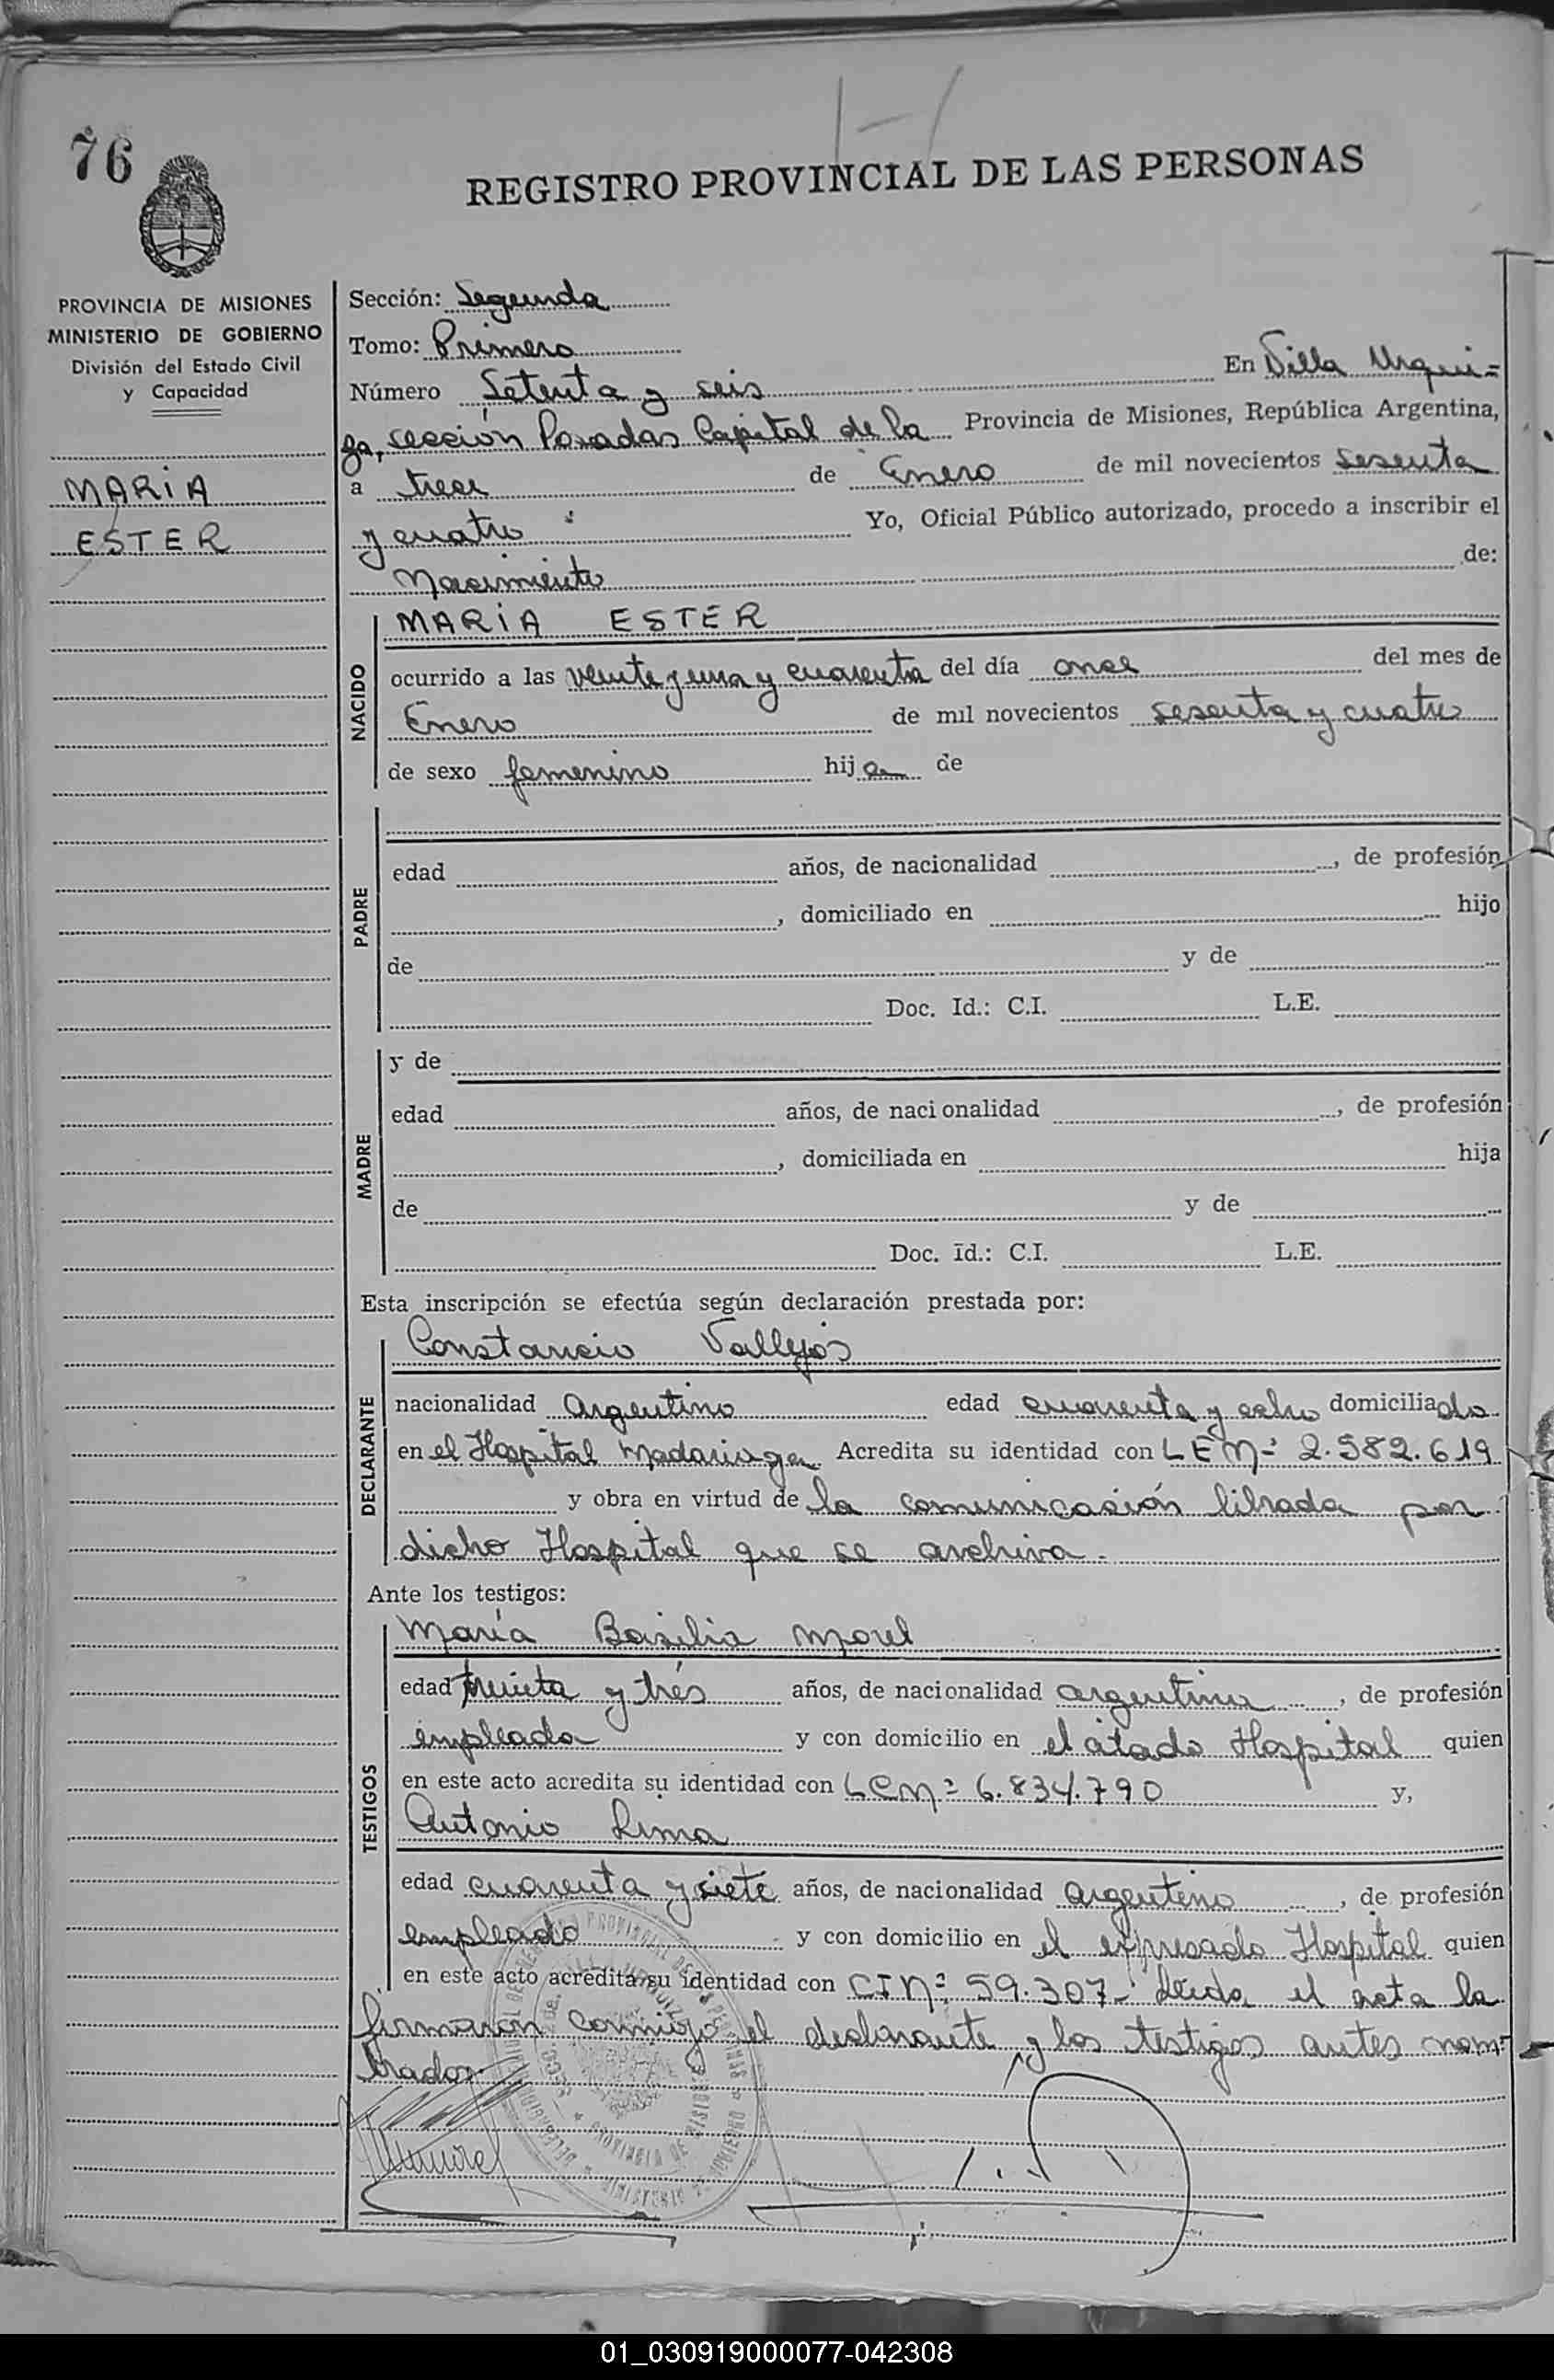 76
REGISTRO PROVINCIAL DE LAS PERSONAS
PROVINCIA DE MISIONES
MINISTERIO DE GOBIERNO
División del Estado Civil
y Capacidad
MARIA
ESTER
Sección: Segunda
Tomo: Primero
Número Setenta y seis En Villa Urqui=
za, sección Posadas Capital de la Provincia de Misiones, República Argentina,
a trece de Enero de mil novecientos sesenta
y cuatro Yo, Oficial Público autorizado, procedo a inscribir el
Nacimiento de:
NACIDO
MARIA ESTER
ocurrido a las veinte y una y cuarenta del día once del mes de
Enero de mil novecientos sesenta y cuatro
de sexo femenino hija de
PADRE
edad años, de nacionalidad , de profesión
, domiciliado en hijo
de y de
Doc. Id.: C.I. L.E.
MADRE
y de
edad años, de nacionalidad , de profesión
, domiciliada en hija
de y de
Doc. Id.: C.I. L.E.
Esta inscripción se efectúa según declaración prestada por:
DECLARANTE
Constancio Vallejos
nacionalidad Argentino edad cuarenta y ocho domiciliado
en el Hospital Madariaga Acredita su identidad con LENº 2.582.619
y obra en virtud de la comunicación librada por
dicho Hospital que se archiva.
Ante los testigos:
TESTIGOS
María Basilia Morel
edad treinta y trés años, de nacionalidad argentina , de profesión
empleada y con domicilio en el citado Hospital quien
en este acto acredita su identidad con LCNº 6.834.790 y,
Antonio Lima
edad cuarenta y siete años, de nacionalidad argentino , de profesión
empleado y con domicilio en el expresado Hospital quien
en este acto acredita su identidad con CINº 59.307- Leída el acta la
firmarán conmigo el declarante y los testigos antes nom=
brados
01_030919000077-042308